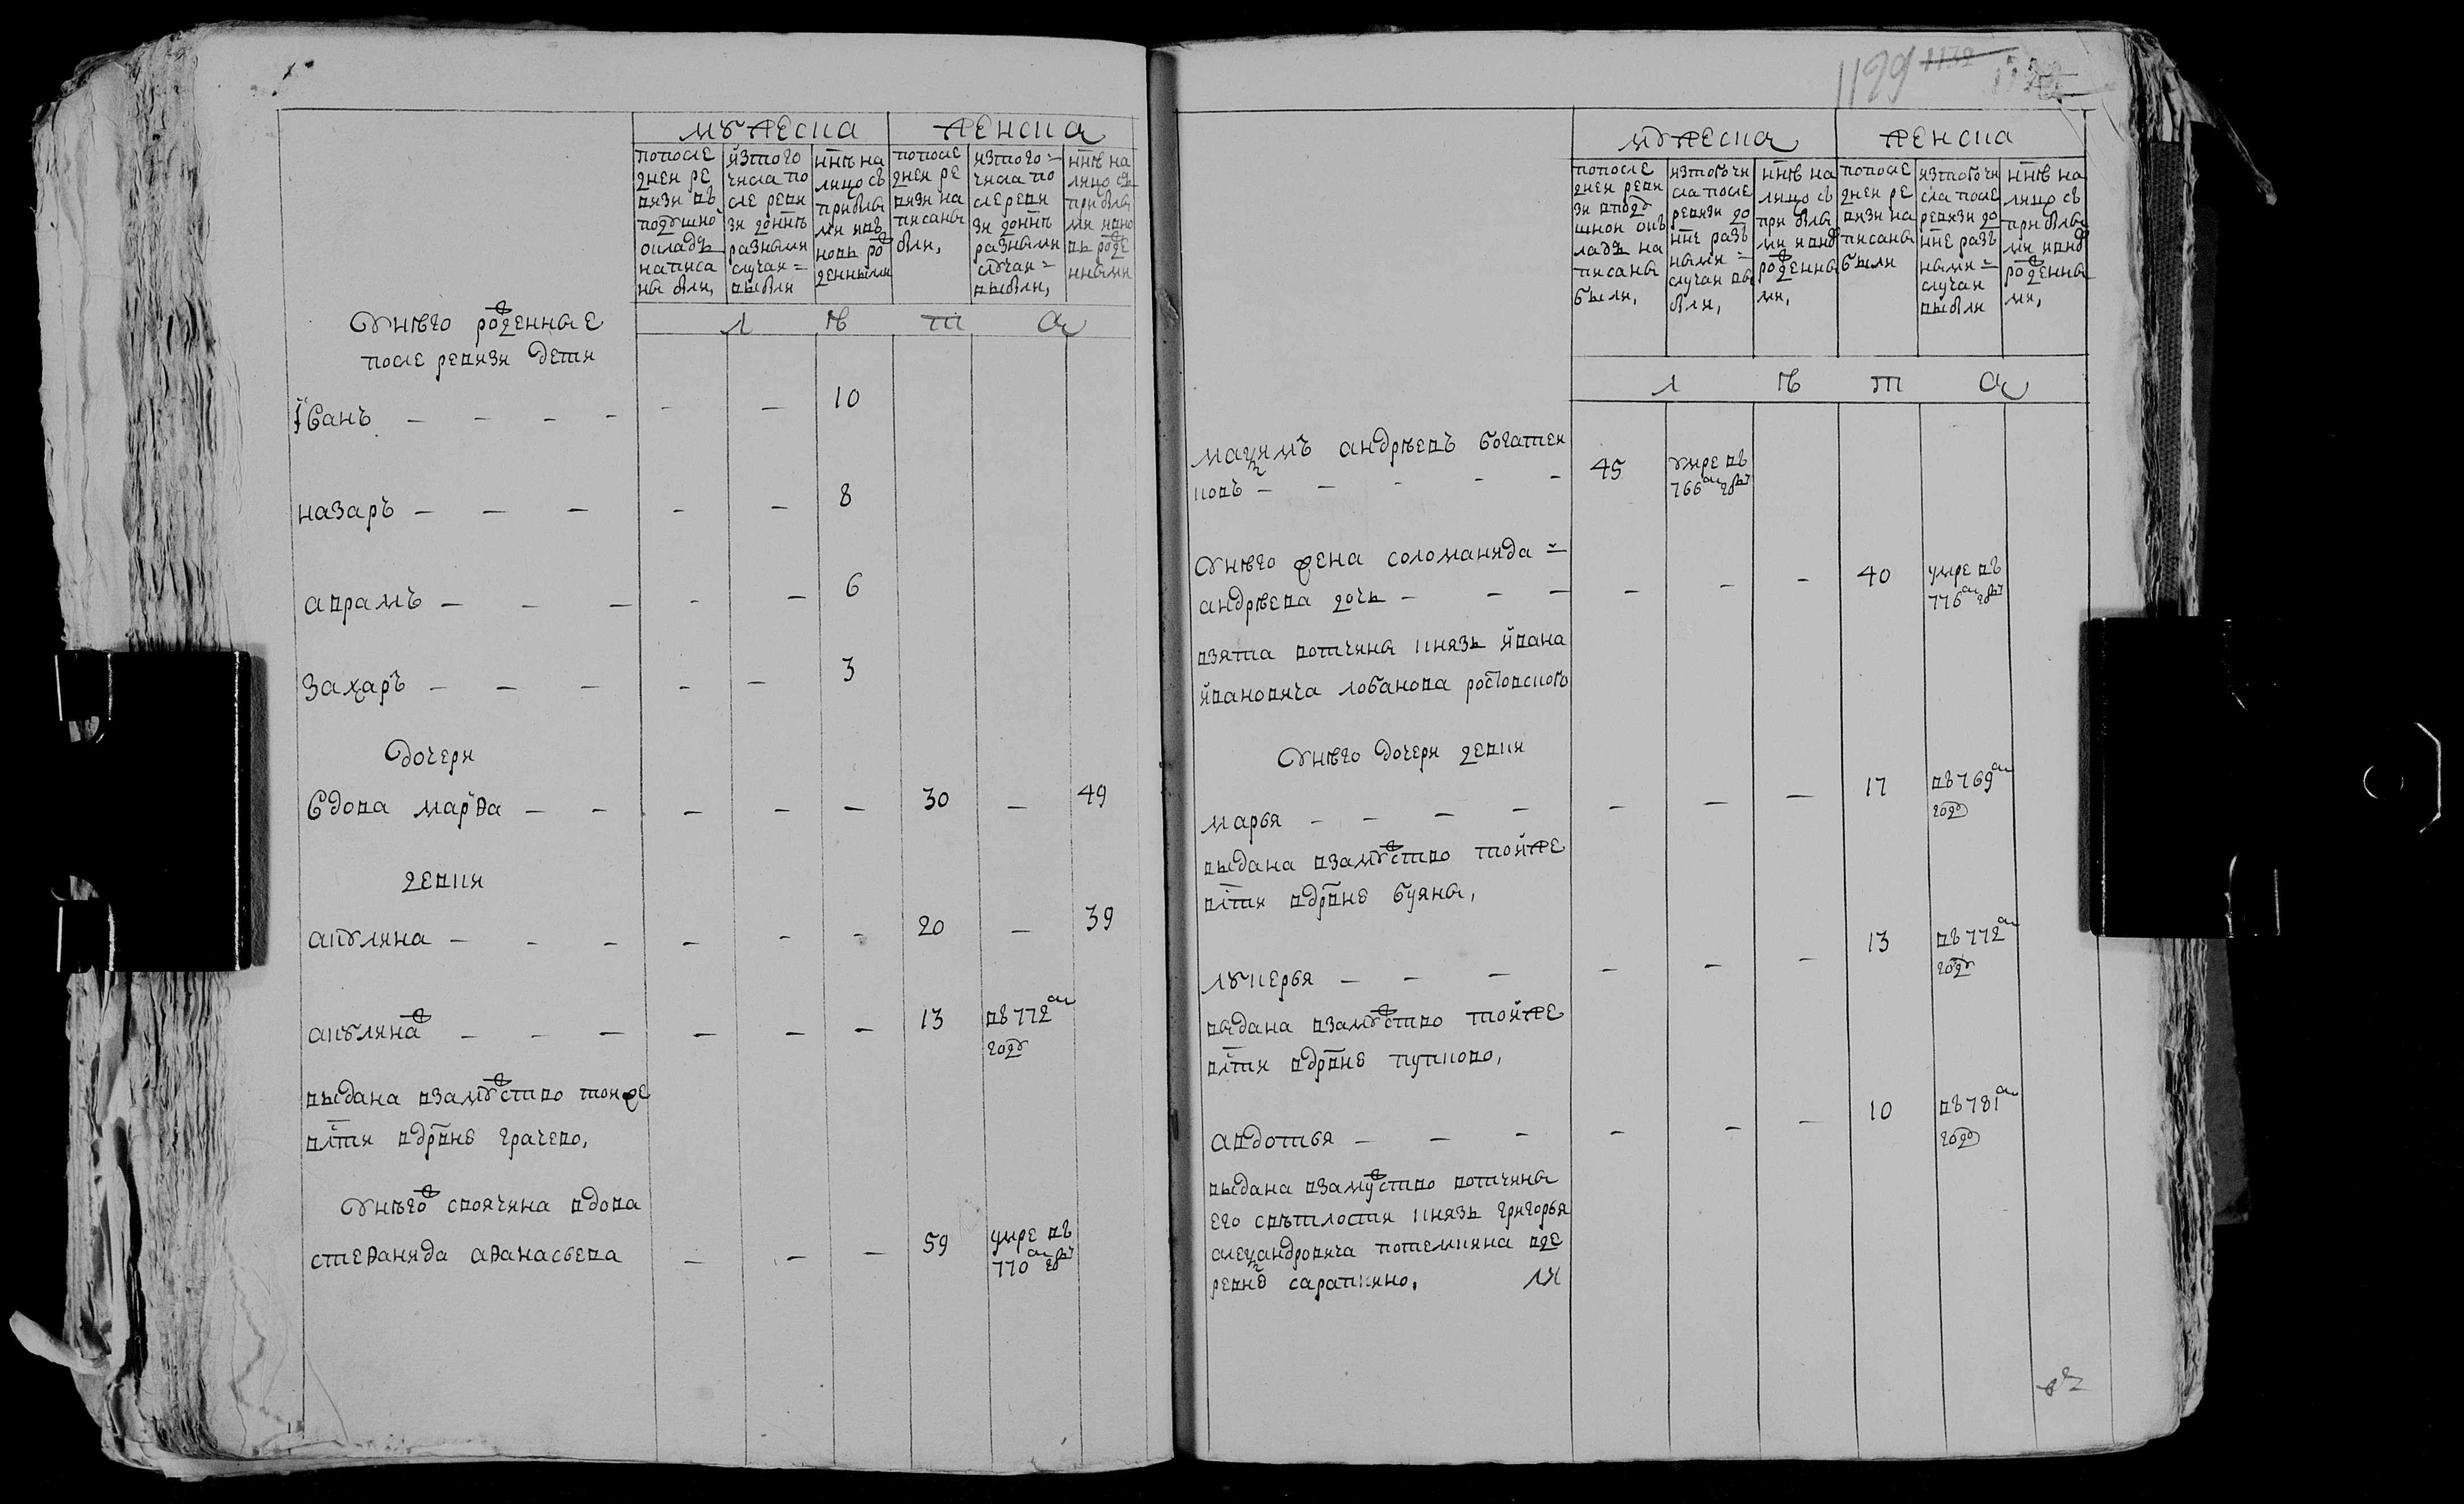 1199 1132
мужеска женска
попосле
дней ре
визи въ
подушной
окладъ
написа
ны были,
изтого
числа по
сле реви
зи доннѣ
разными
случаи=
выбыли
ннѣ на
лицо съ
прибылы
ми ивъ
новь ро
жденными
попосле
дней ре
визи на
писаны
были,
изтого=
числа по
сле реви
зи доннѣ
разными
случаи=
выбыли,
ннѣ на
лицо съ
прибылы
ми ивно
вь рожде
нными
л ѣ т а
Унѣго рожденные
после ревизи дети
Iванъ — — — — — — 10
назаръ — — — — — 8
аврамъ — — — — — 6
Захаръ — — — — — 3
дочери
вдова марѳа — — — — — 30 — 49
девки
акулина — — — — — — 20 — 39
акулинаж — — — — — — 13 въ 772м
году
выдана взамужство тойже
влтни вдрвне грачево,
Унѣгож своячина вдова
стеѳанида аѳанасьева — — — 59 умре въ
770м году
мужеска женска
попосле
дней реви
зи вподу
шной окъ
ладъ на
писаны
были,
изтого чи
сла после
ревизи до
ннѣ разъ
ными=
случаи вы
были,
ннѣ на
лицо съ
прибылы
ми ивно
рожденны
ми,
попосле
дней ре
визи на
писаны
были
изтого чи
сла после
ревизи до
ннѣ разъ
ными=
случаи
выбыли
ннѣ на
лицо съ
прибылы
ми ивно
рожденны
ми,
л ѣ т а
маѯимъ андрѣевъ богатей
ковъ — — — — — 45 умре въ
766м году
Унѣго жена соломанида =
андрѣева дочь — — — — — — 40 умре въ
776м году
взята вотчины князь ивана
ивановича лобанова ростовского
Унѣго дочери девки
марья — — — — — — — 17 въ 769м
году
выдана взамужство тойже
влтни вдрвне буяны,
лукерья — — — — — — 13 въ 772м
году
выдана взамужство тойже
влтни вдрвне пупково,
авдотья — — — — — — 10 въ 781м
году
выдана взамужство вотчины
его свѣтлости князь григорья
алеѯандровича потемкина вде
ревнѣ сарапкино. ли